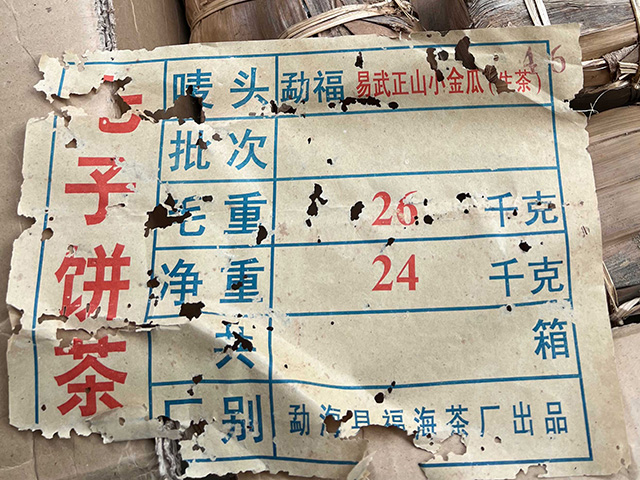 七子饼茶
唛头 勐福 易武正山小金瓜(生茶) 46
批次
毛重 26 千克
净重 24 千克
共 箱
厂别 勐海县福海茶厂出品